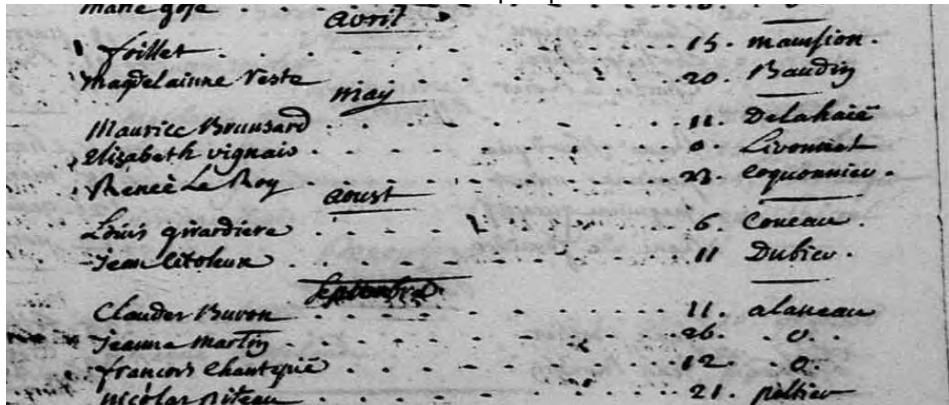 marie gose . . . . . . o
avril
foillet . . . . . . 15. maussion.
magdelainne Veste . . . . . . 20. Baudin
may
Maurice Brunsard . . . . . . 11. Delahaië
Elizabeth vignais . . . . . . 0. Livonniet
Renée Le Roy . . . . . . 23. Coquonnier.
aoust
Louis girardiere . . . . . . 6. Coneau.
Jean . . . . . . 11 Dubier.
Septembre
Claude Buron . . . . . . 11. alaneau
Jeanne Martin . . . . . . 26. . 0.
francois Chantepië . . . . . . 12. . 0.
nicolas piteau . . . . . . 21. peltier